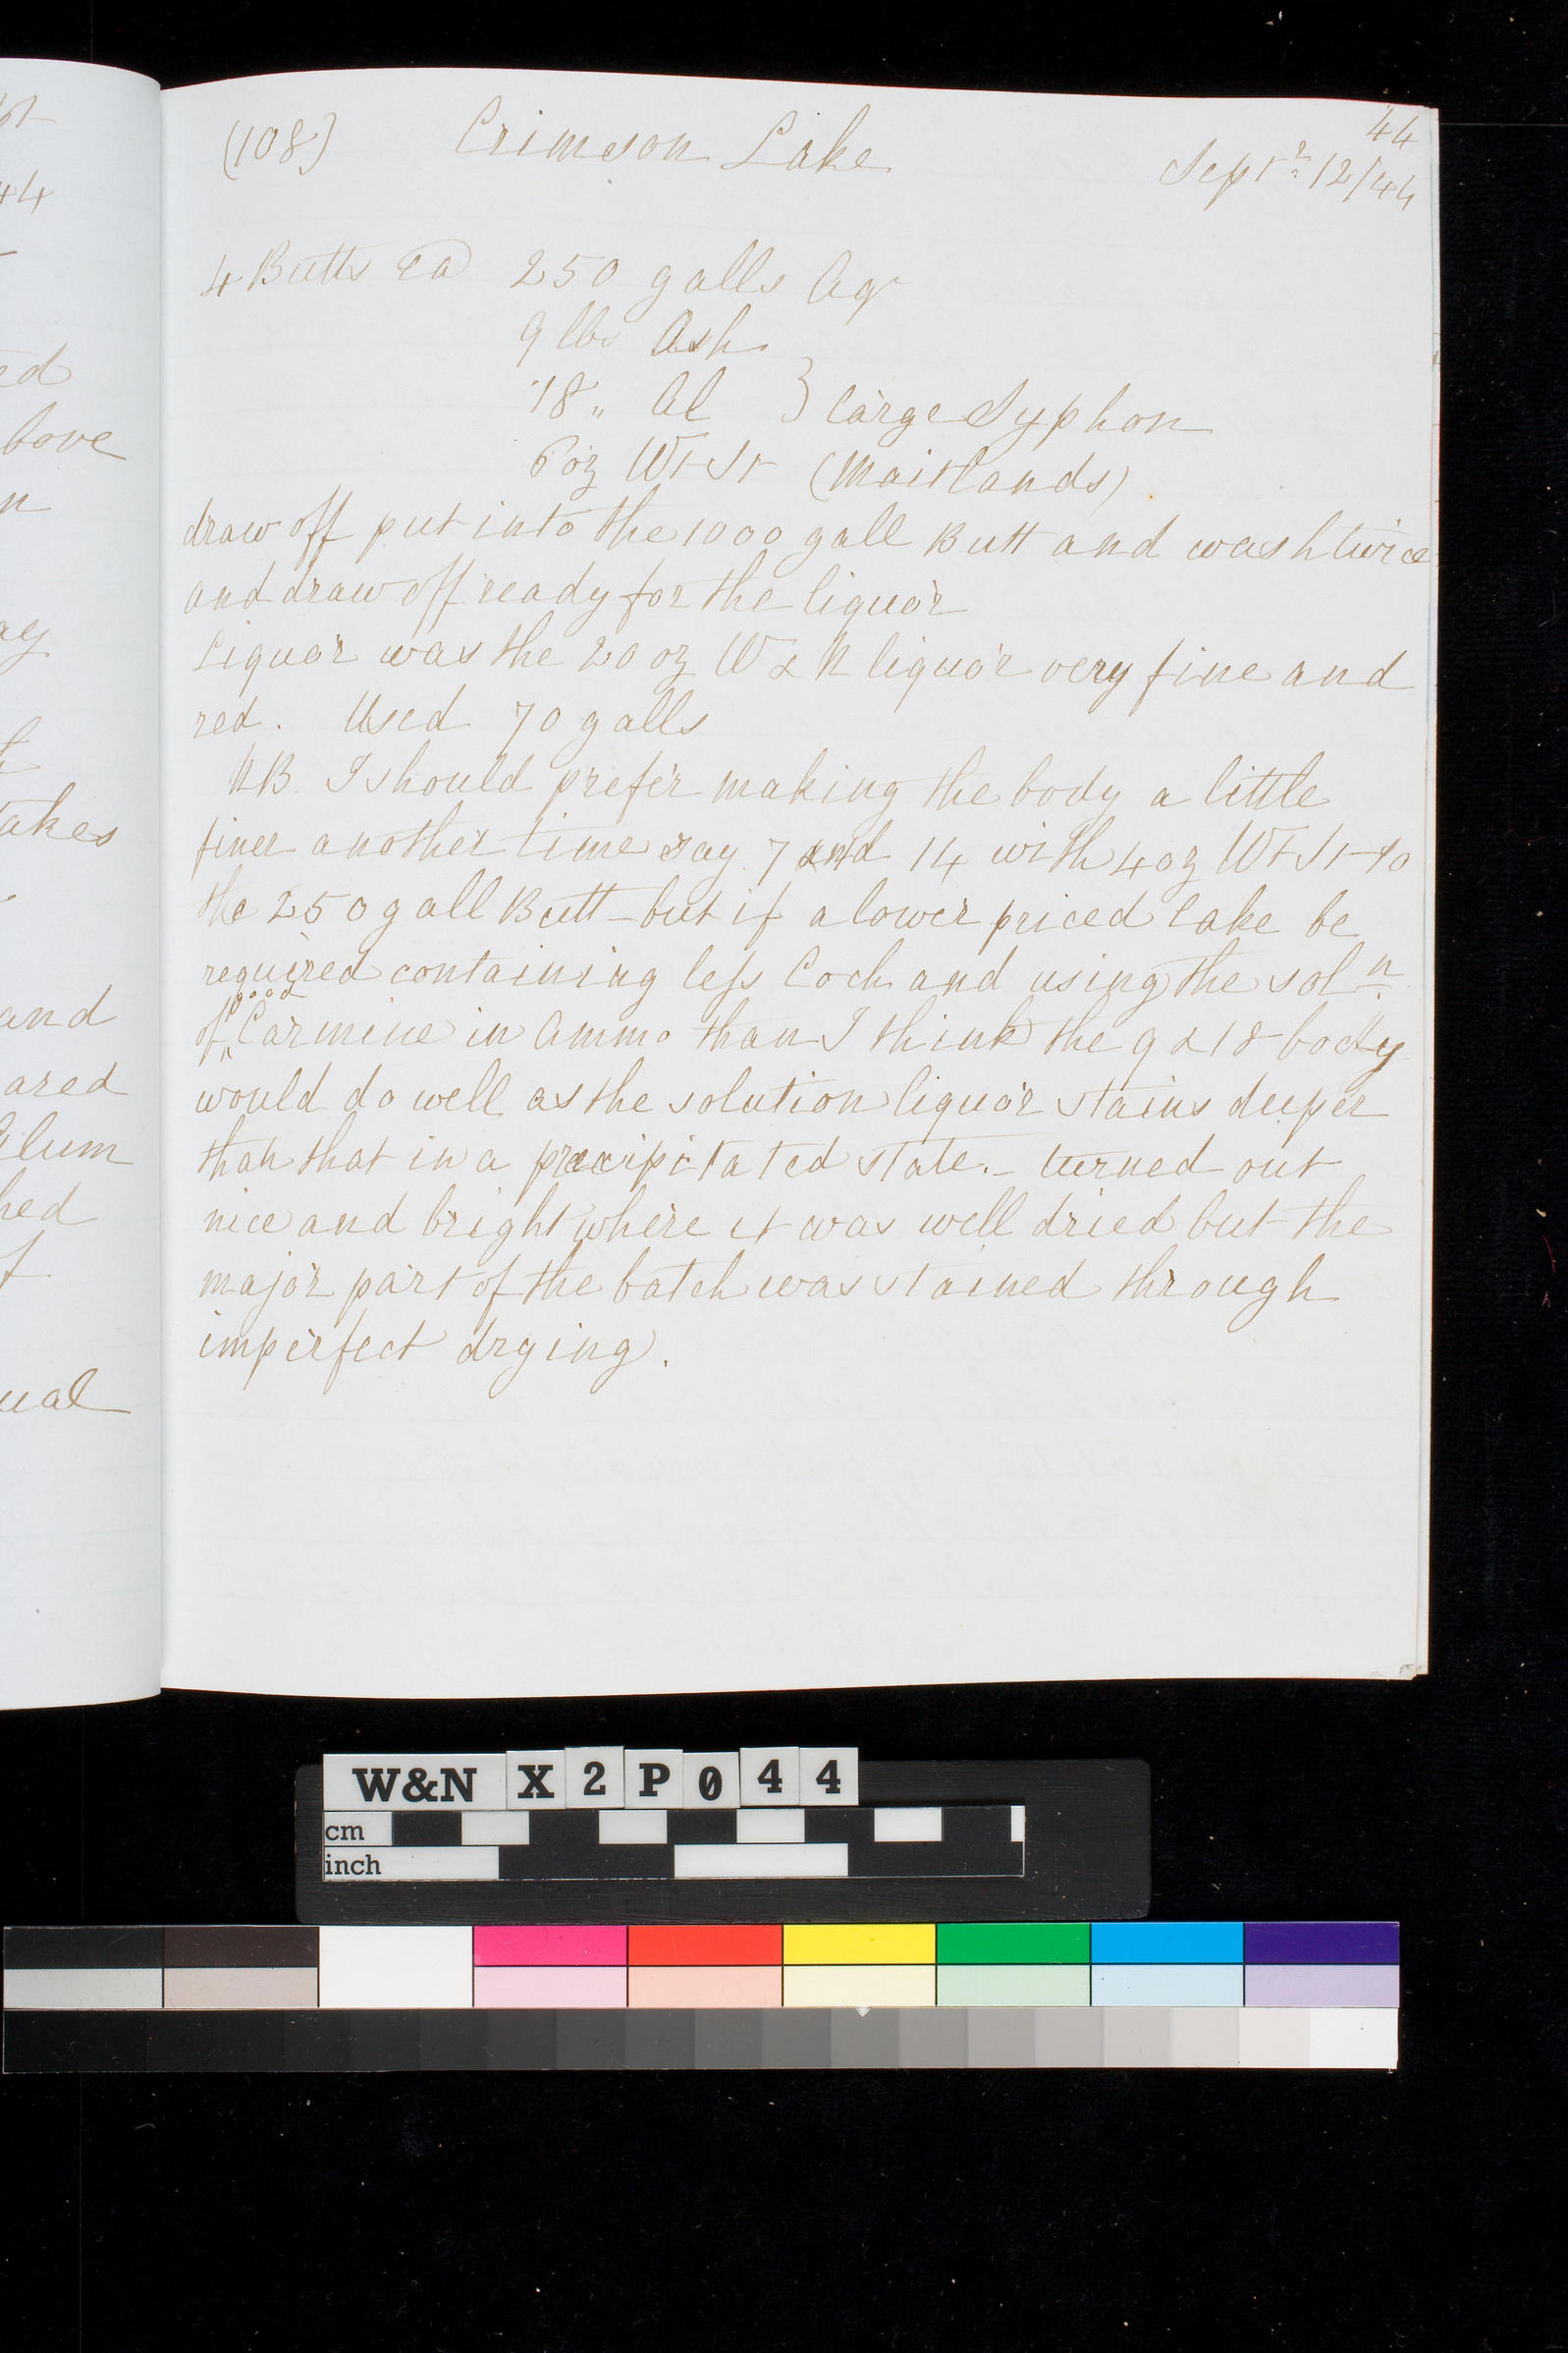 44
(108) Crimson Lake Septr 12/44
4 Butts ea 250 galls Aq
9 lbs Ash
18 „ Al } large Syphon
6 oz Wt St (Maitlands)
draw off put into the 1000 gall Butt and wash twice
and draw off ready for the liquor
Liquor was the 20 oz W & N liquor very fine and
red. Used 70 galls
NB. I should prefer making the body a little
finer another time say 7 and 14 with 4 oz Wt St to
the 250 gall Butt – but if a lower priced lake be
required containing less Coch and using the soln
of good Carmine in Ammo than I think the 9 & 18 body
would do well as the solution liquor stains deeper
than that in a precipitated state. – turned out
nice and bright where it was well dried but the
major part of the batch was stained through
imperfect drying.
44
ed
bove
n
takes
and
ared
Alum
hed
f
ual
W&N X2P044
cm
inch